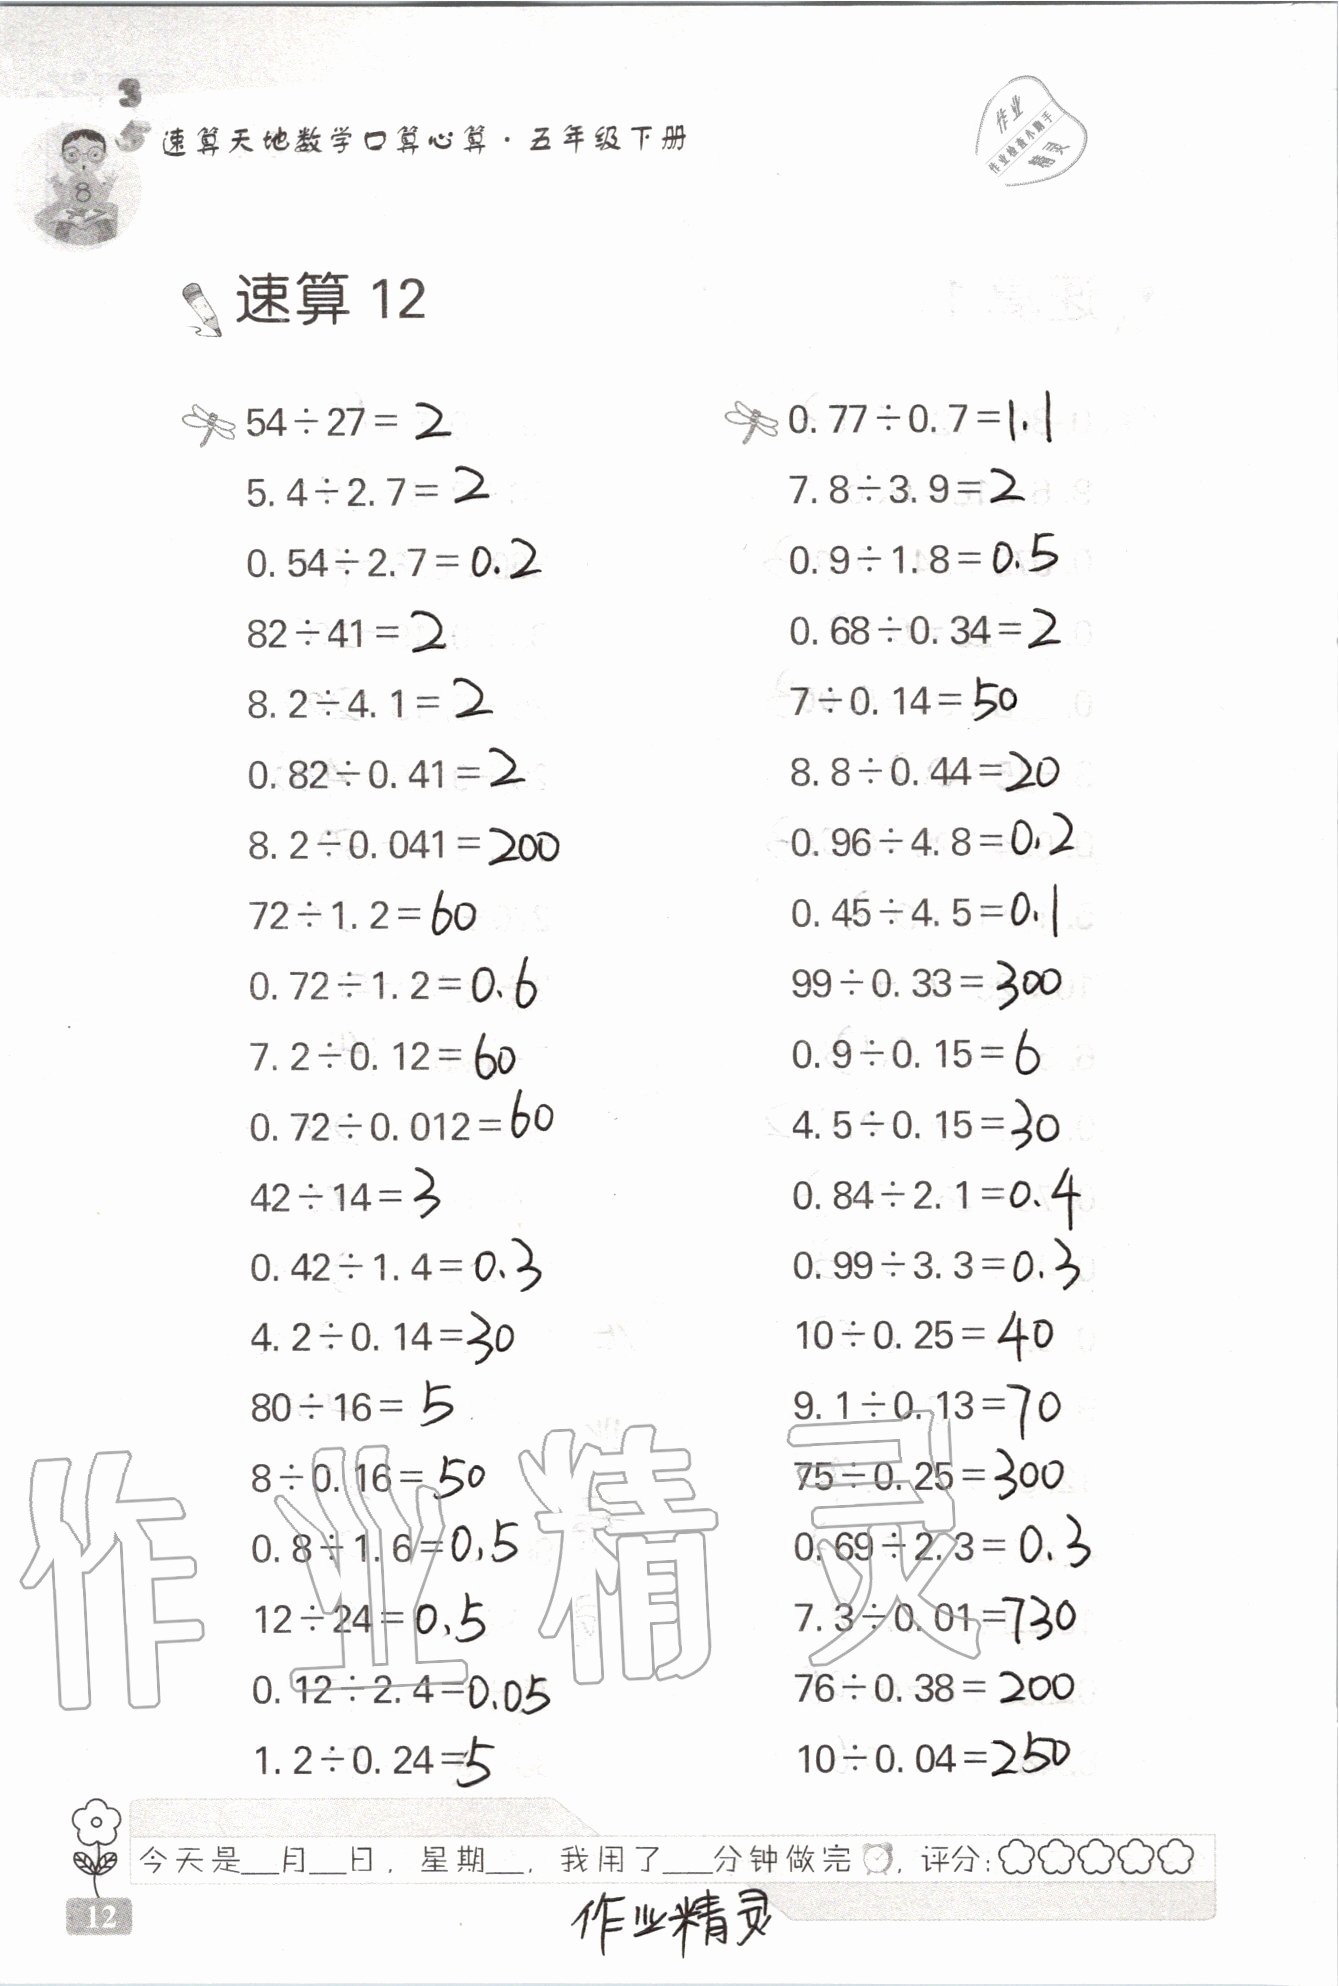 速算天地数学口算心算·五年级下册
作业
作业检查小助手
精灵
速算 12
54÷27= 2
5.4÷2.7= 2
0.54÷2.7= 0.2
82÷41= 2
8.2÷4.1= 2
0.82÷0.41= 2
8.2÷0.041= 200
72÷1.2= 60
0.72÷1.2= 0.6
7.2÷0.12= 60
0.72÷0.012= 60
42÷14= 3
0.42÷1.4= 0.3
4.2÷0.14= 30
80÷16= 5
8÷0.16= 50
0.8÷1.6= 0.5
12÷24= 0.5
0.12÷2.4= 0.05
1.2÷0.24= 5
0.77÷0.7= 1.1
7.8÷3.9= 2
0.9÷1.8= 0.5
0.68÷0.34= 2
7÷0.14= 50
8.8÷0.44= 20
0.96÷4.8= 0.2
0.45÷4.5= 0.1
99÷0.33= 300
0.9÷0.15= 6
4.5÷0.15= 30
0.84÷2.1= 0.4
0.99÷3.3= 0.3
10÷0.25= 40
9.1÷0.13= 70
75÷0.25= 300
0.69÷2.3= 0.3
7.3÷0.01= 730
76÷0.38= 200
10÷0.04= 250
作业精灵
今天是__月__日，星期__，我用了__分钟做完，评分：
12
作业精灵